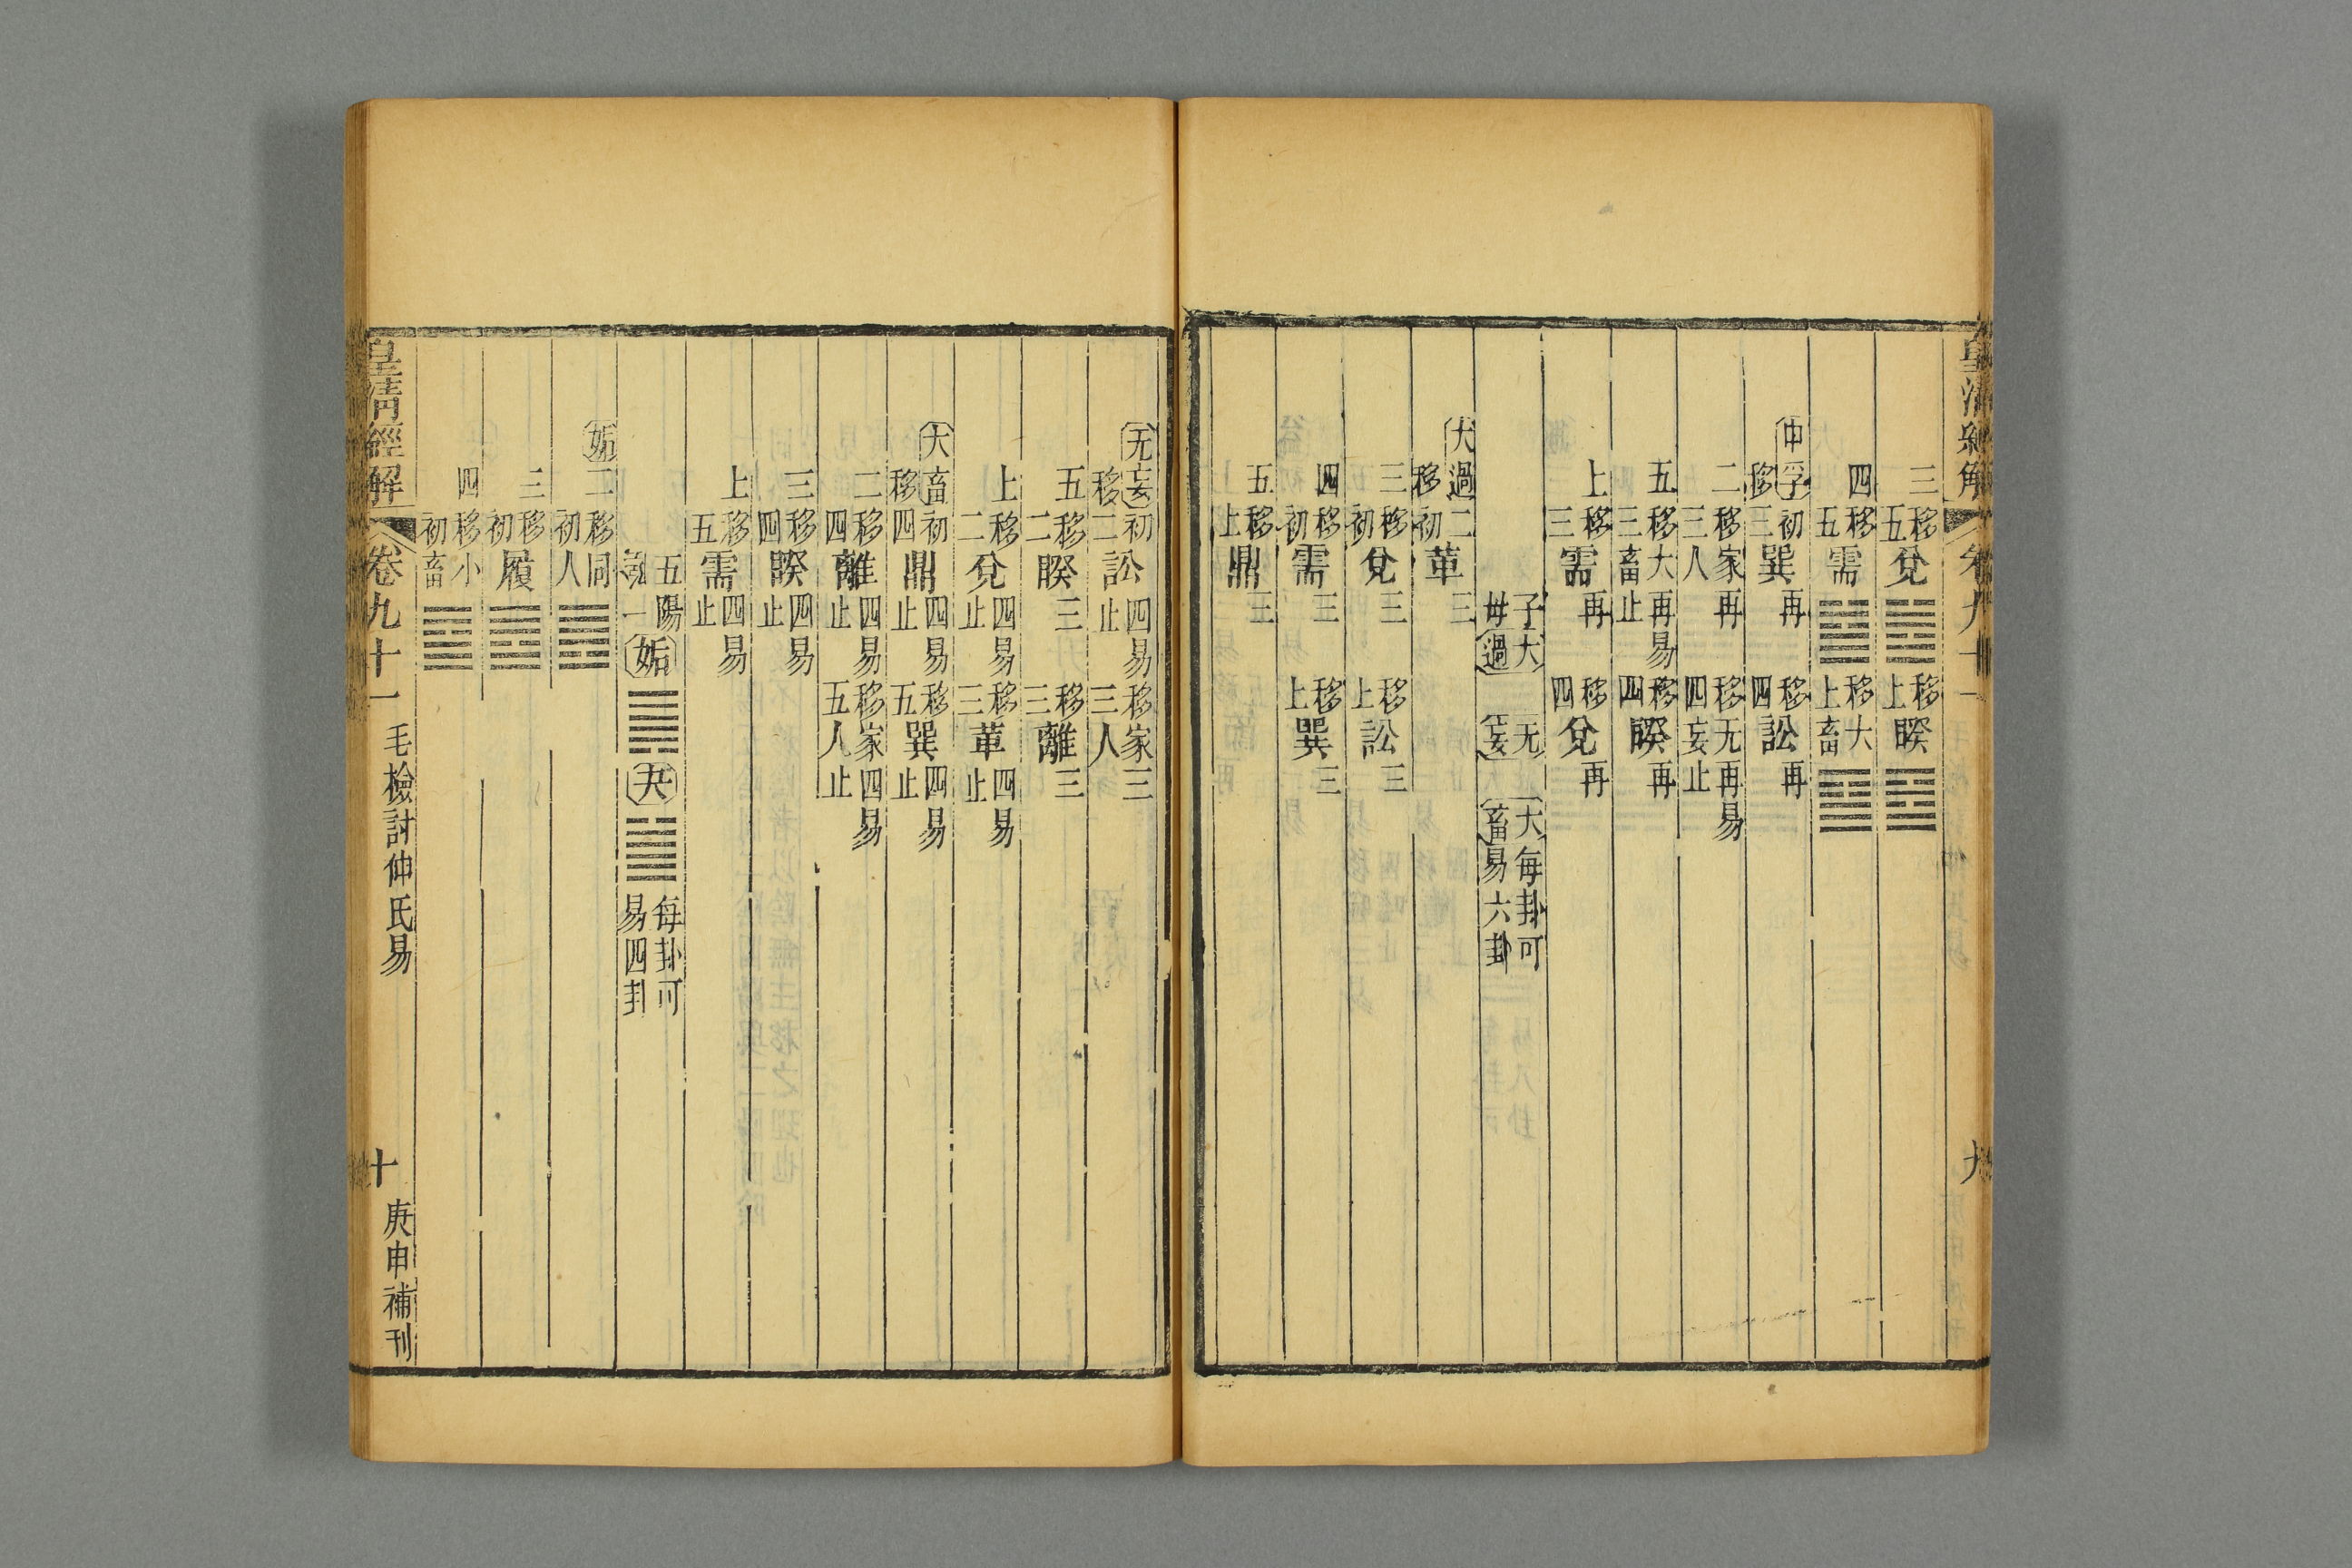 皇清經解 卷九十一 九
三移五兌 移上睽
四移五需 移上大畜
中孚初移三巽再 移四訟再
二移三家人再 移四无妄再易止
五移三大畜再易止 移四睽再
上移三需再 移四兌再
子母大過 无妄 大畜 每卦可易六卦
大過二移初革三
三移初兌三 移上訟三
四移初需三 移上巽三
五移上鼎三
无妄初移二訟四易止 移三家人三
五移二睽三 移三離三
上移二兌四易止 移三革四易止
大畜初移四鼎四易止 移五巽四易止
二移四離四易止 移五家人四易止
三移四睽四易止
上移五需四易止
五陽一 姤 夬 每卦可易四卦
姤二移初同人
三移初履
四移初小畜
皇清經解 卷九十一 毛檢討仲氏易 十 庚申補刊